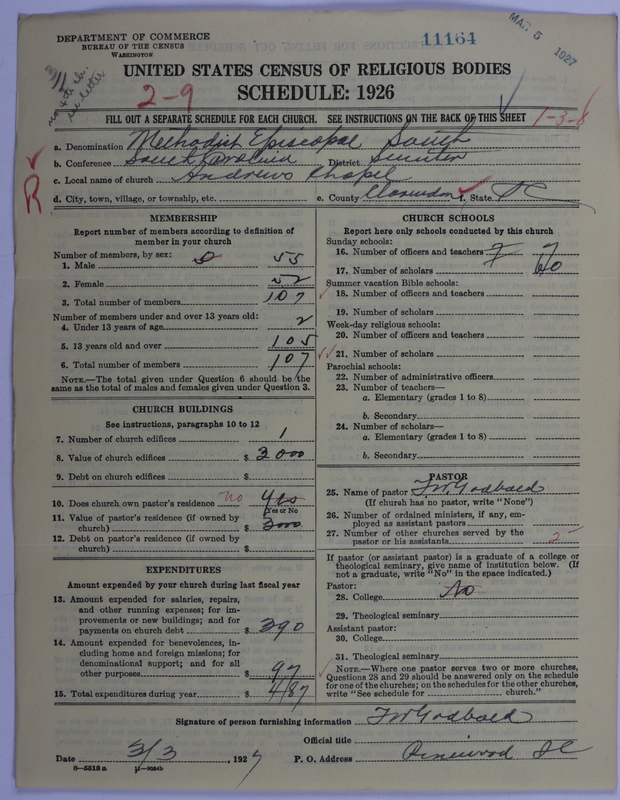 DEPARTMENT OF COMMERCE
BUREAU OF THE CENSUS
WASHINGTON
11164
MAR 5 1927
UNITED STATES CENSUS OF RELIGIOUS BODIES
SCHEDULE: 1926
2-9
FILL OUT A SEPARATE SCHEDULE FOR EACH CHURCH. SEE INSTRUCTIONS ON THE BACK OF THIS SHEET
1-3-8
a. Denomination Methodist Episcopal South
b. Conference South Carolina District Sumter
c. Local name of church Andrews Chapel
R
d. City, town, village, or township, etc. e. County Clarendon f. State SC
MEMBERSHIP
Report number of members according to definition of
member in your church
Number of members, by sex:
1. Male 55
2. Female 52
3. Total number of members 107
Number of members under and over 13 years old:
4. Under 13 years of age 2
5. 13 years old and over 105
6. Total number of members 107
NOTE.—The total given under Question 6 should be the
same as the total of males and females given under Question 3.
CHURCH BUILDINGS
See instructions, paragraphs 10 to 12
7. Number of church edifices 1
8. Value of church edifices $ 3000
9. Debt on church edifices $
10. Does church own pastor's residence no yes
(Yes or No)
11. Value of pastor's residence (if owned by
church) $ 3000
12. Debt on pastor's residence (if owned by
church) $
EXPENDITURES
Amount expended by your church during last fiscal year
13. Amount expended for salaries, repairs,
and other running expenses; for im-
provements or new buildings; and for
payments on church debt $ 390
14. Amount expended for benevolences, in-
cluding home and foreign missions; for
denominational support; and for all
other purposes $ 97
15. Total expenditures during year $ 487
CHURCH SCHOOLS
Report here only schools conducted by this church
Sunday schools:
16. Number of officers and teachers 7 7
17. Number of scholars 60
Summer vacation Bible schools:
18. Number of officers and teachers
19. Number of scholars
Week-day religious schools:
20. Number of officers and teachers
21. Number of scholars
Parochial schools:
22. Number of administrative officers
23. Number of teachers—
a. Elementary (grades 1 to 8)
b. Secondary
24. Number of scholars—
a. Elementary (grades 1 to 8)
b. Secondary
PASTOR
25. Name of pastor J W Godbold
(If church has no pastor, write "None")
26. Number of ordained ministers, if any, em-
ployed as assistant pastors
27. Number of other churches served by the
pastor or his assistants 2
If pastor (or assistant pastor) is a graduate of a college or
theological seminary, give name of institution below. (If
not a graduate, write "No" in the space indicated.)
Pastor:
28. College No
29. Theological seminary
Assistant pastor:
30. College
31. Theological seminary
NOTE.—Where one pastor serves two or more churches,
Questions 28 and 29 should be answered only on the schedule
for one of the churches; on the schedules for the other churches,
write "See schedule for church."
Signature of person furnishing information J W Godbold
Official title
Date 3/3, 1927 P. O. Address Pinewood SC
8—5518 a